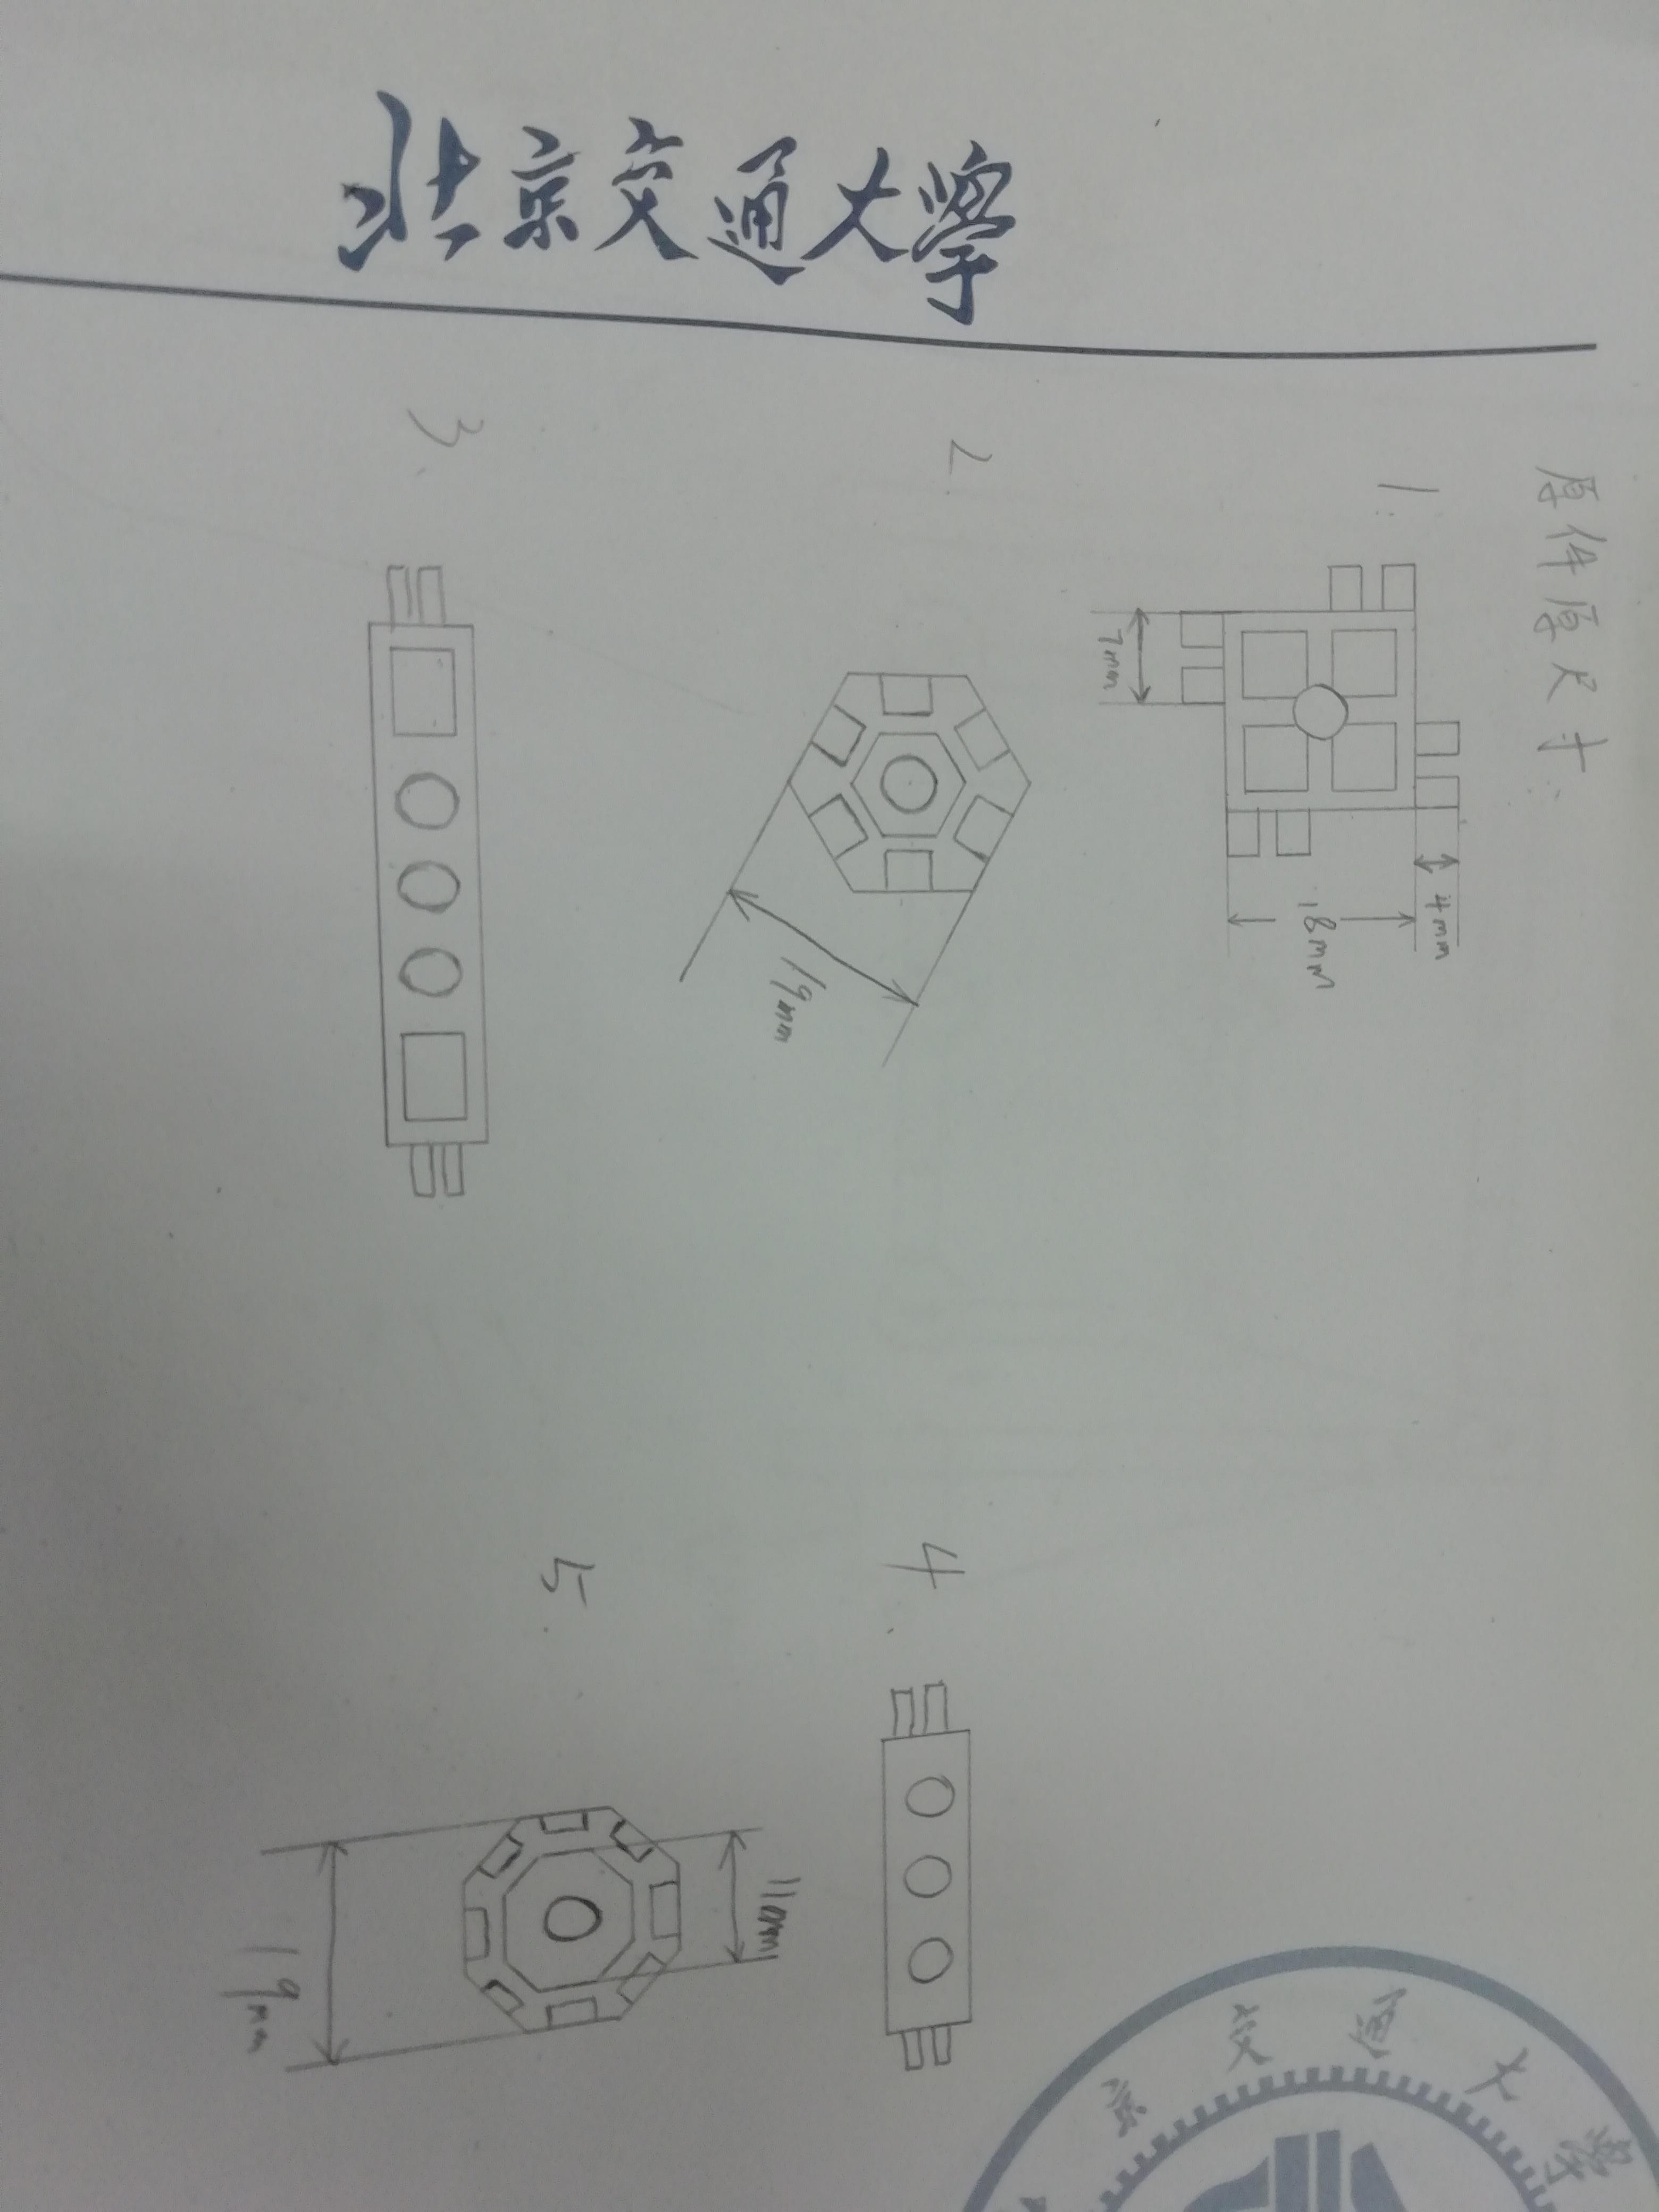 北京交通大學
原件原尺寸:
1.
7mm
4mm
18mm
2.
19mm
3.
4.
5.
11mm
19mm
京交通大學